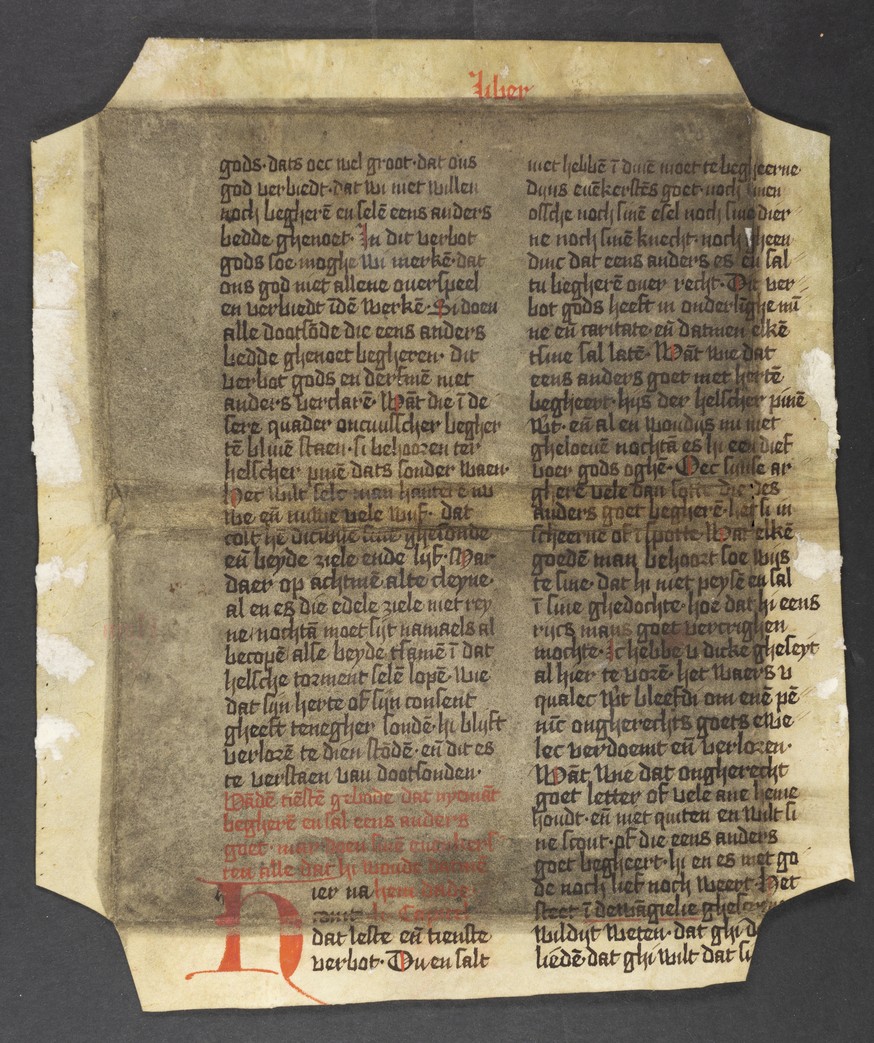 Liber
gods·dats oec wel groot·dat ons
god verbiedt·dat wi niet willen
noch begherē en selē eens anders
bedde ghenoet· In dit verbot
gods soe moghe wi merkē·dat
ons god niet allene overspeel
en verbiedt īdē werkē·Si doen
alle dootsōde die eens anders
bedde ghenoet begheren· dit
verbot gods en derfmē niet
anders verclarē·Wāt die ī de
sere quader oncuusscher begher
tē bliuē staen·si behooren ter
helscher pinē dats sonder waen·
wilt selc man hantere nv
we eñ nuwe vele wijf· dat
eñ beyde ziele ende lijf·Mar
daer op achtmē alte cleyne·
al en es die edele ziele niet rey
ne·nochtā moet sijt namaels al
becopē alse beyde tsamē ī dat
helsche torment selē lopē·wie
dat sijn herte of sijn consent
gheeft tenegher sondē·hi blijft
verlorē te dien stōdē·eñ dit es
te verstaen van dootsonden·
tiēstē gebode dat nyemāt
begherē en sal eens anders
goet· may
ten alle dat hi
Hier na
Capitel
dat leste eñ tienste
verbot·Du en salt
niet hebbē ī dinē moet te begheerne·
dijns euēkerstēs goet·noch sinen
ossche noch sinē esel noch sine dier
ne noch sinē knecht·noch gheen
dinc dat eens anders es eñ sal
tu begherē ouer recht·Dit ver
bot gods heeft in onderlīghe mī
ne eñ caritate·eñ datmen elkē
tsine sal latē·Wāt wie dat
eens anders goet met hertē
begheert·hijs der helscher pinē
wt·eñ al en wondijs nu niet
gheloeuē nochtā es hi een dief
voer gods oghē·Oec sijnse ar
ghere vele dan die des
anders goet begherē·het si in
scheerne of ī spotte·Wat elkē
goedē man behoort soe wijs
te sine·dat hi niet peysē en sal
ī sine ghedochte·hoe dat hi eens
rijcs mans goet vercrighen
mochte·Ic hebbe v dicke gheseyt
al hier te vorē·het waers v
qualec wt bleefdi om enē pē
nīc ongherechts goets ewe
lec verdoemt eñ verloren·
Wāt wie dat ongherecht
goet letter of vele ane heme
houdt·eñ niet quiten en wilt si
ne scout·of die eens anders
goet begheert·hi en es niet go
de noch lief noch weert·Het
steet ī dewāgielie
wildijt weten·dat ghi
liedē·dat ghi wilt dat